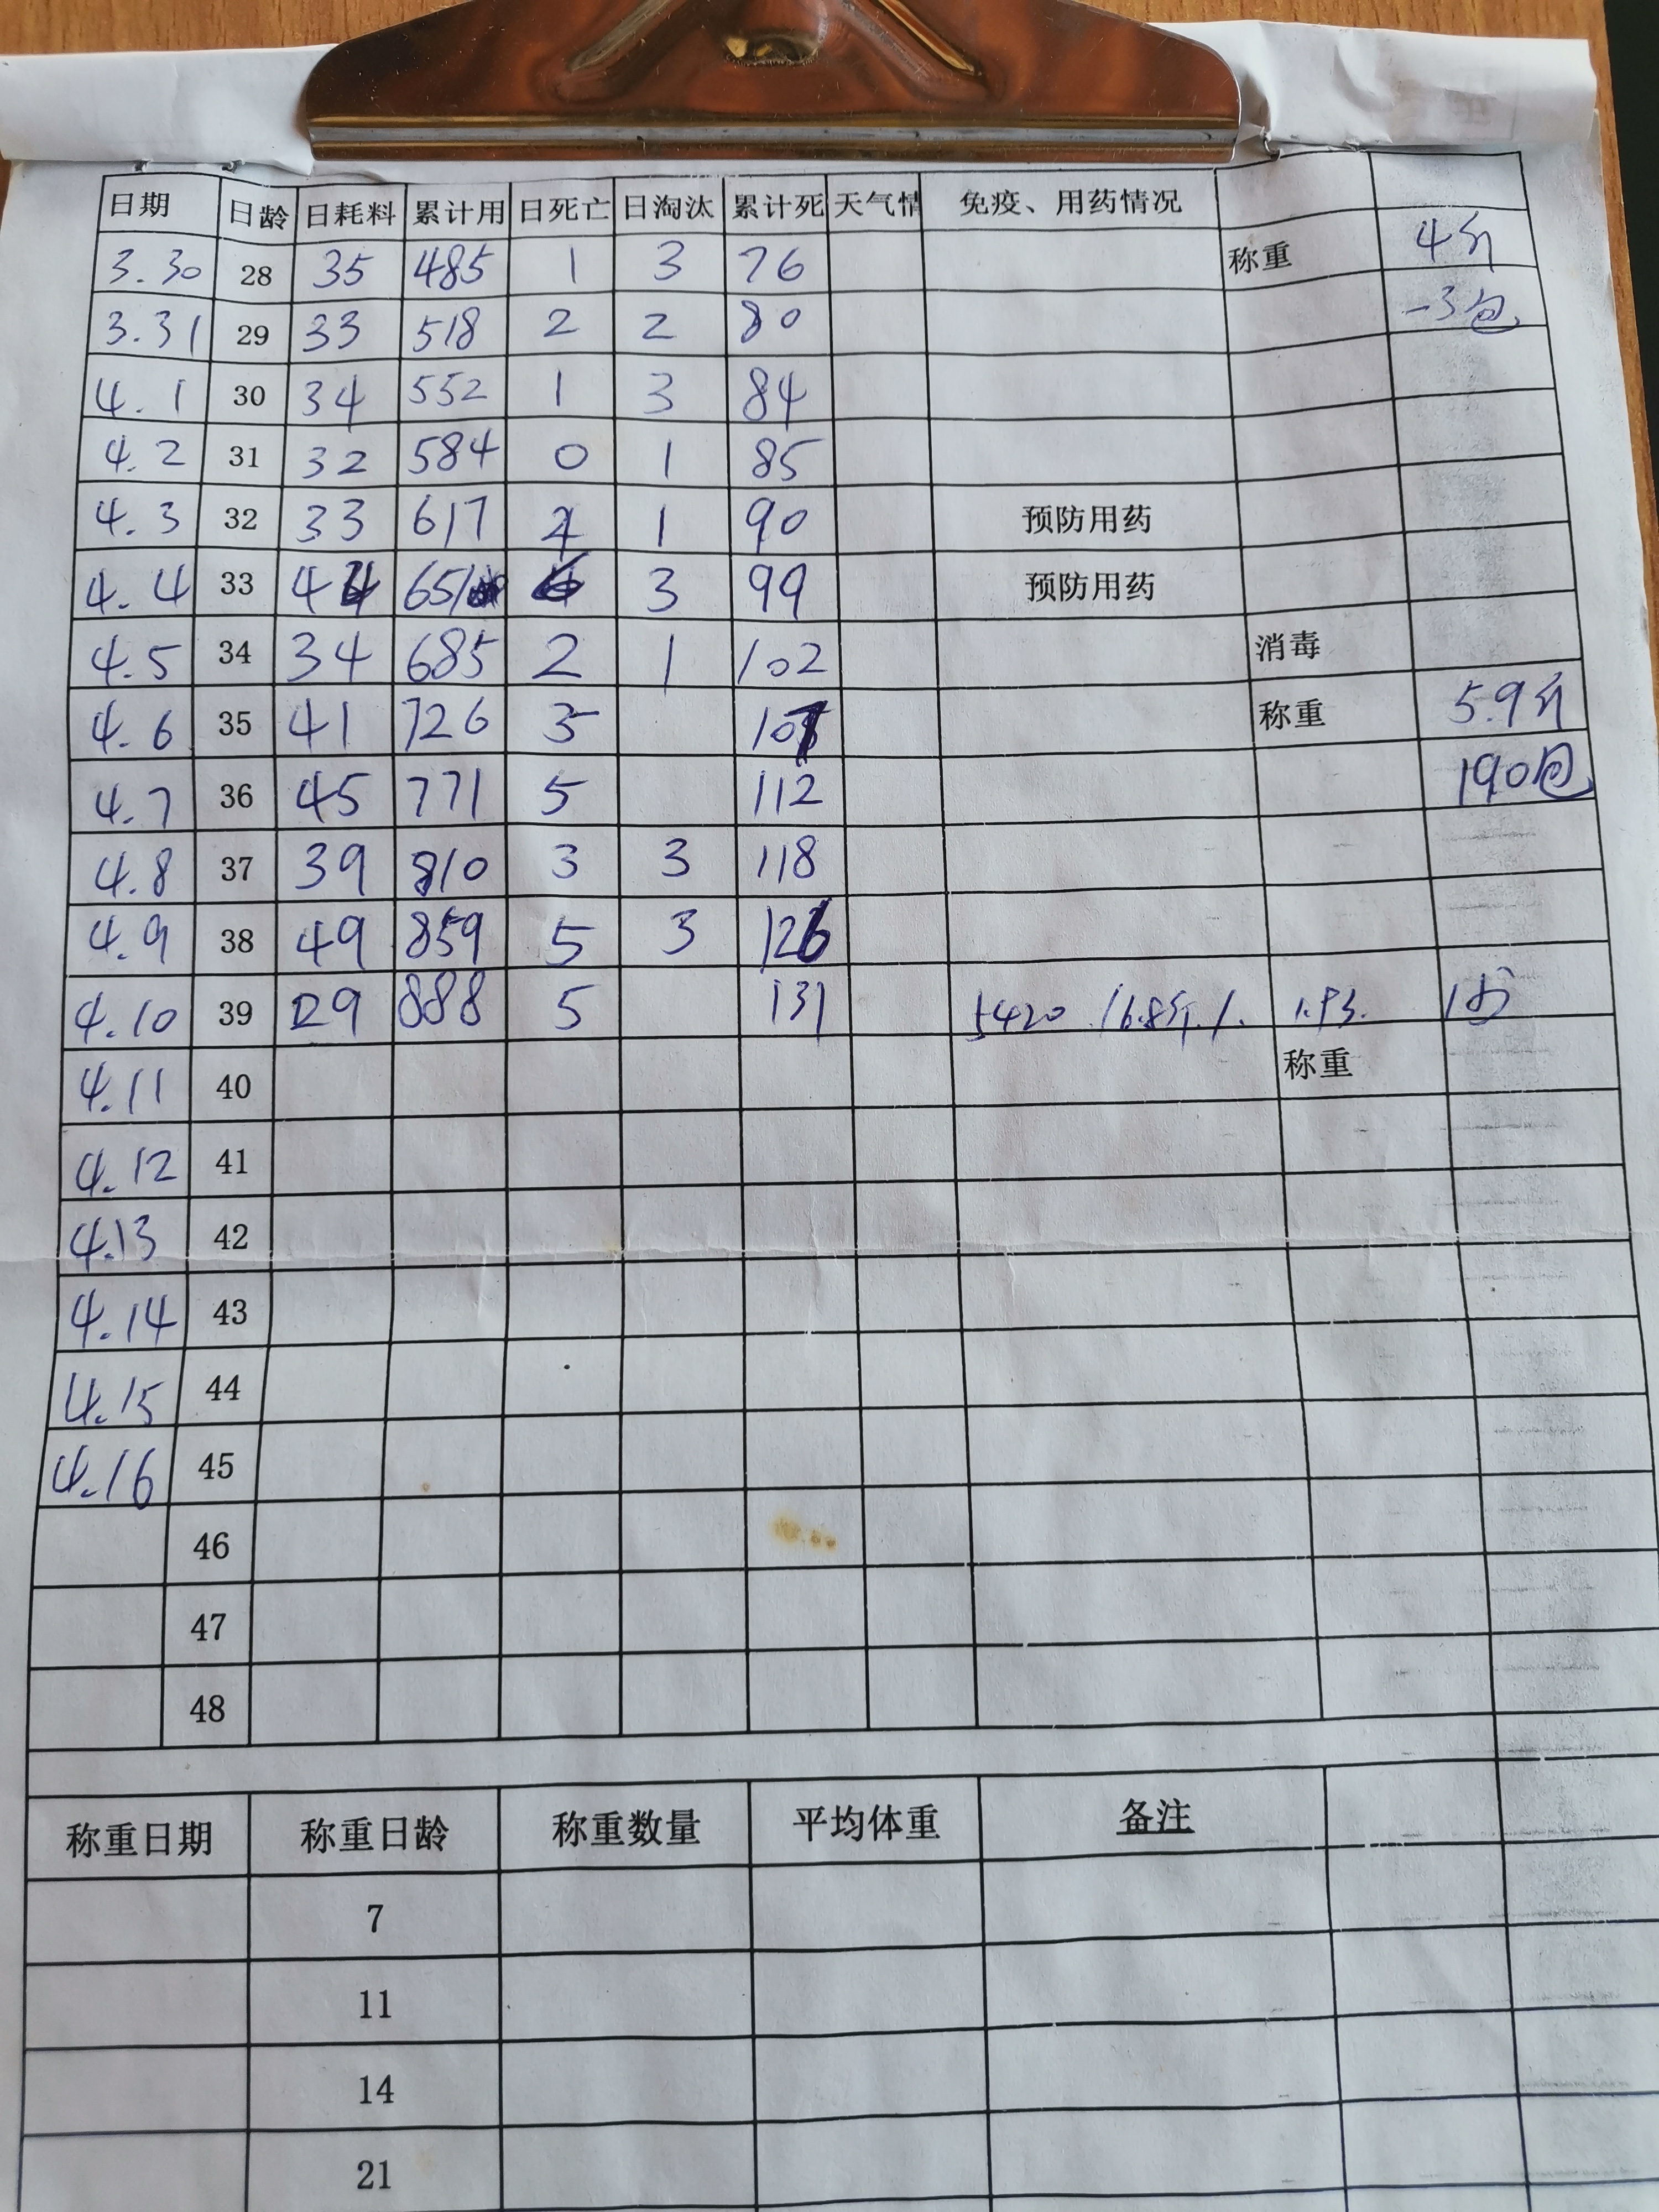 日期 日龄 日耗料 累计用 日死亡 日淘汰 累计死 天气情 免疫、用药情况
3.30 28 35 485 1 3 76 称重 4斤
3.31 29 33 518 2 2 80 -3包
4.1 30 34 552 1 3 84
4.2 31 32 584 0 1 85
4.3 32 33 617 4 1 90 预防用药
4.4 33 44 651 6 3 99 预防用药
4.5 34 34 685 2 1 102 消毒
4.6 35 41 726 5 107 称重 5.9斤
4.7 36 45 771 5 112 190包
4.8 37 39 810 3 3 118
4.9 38 49 859 5 3 126
4.10 39 29 888 5 131 5420 16.8斤 1.93.
4.11 40 称重
4.12 41
4.13 42
4.14 43
4.15 44
4.16 45
46
47
48
称重日期 称重日龄 称重数量 平均体重 备注
7
11
14
21